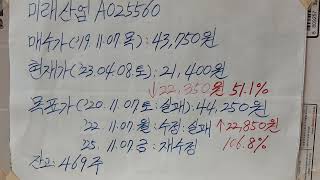 미래산업 A025560
매수가('19.11.07 목): 43,750원
현재가('23.04.08.토): 21,400원
↓22,350원 51.1%
목표가('20.11.07 토: 실패) 44,250원
22.11.07 월: 수정: 실패 ↑22,850원
25.11.07 금: 재수정 106.8%
잔고: 469주